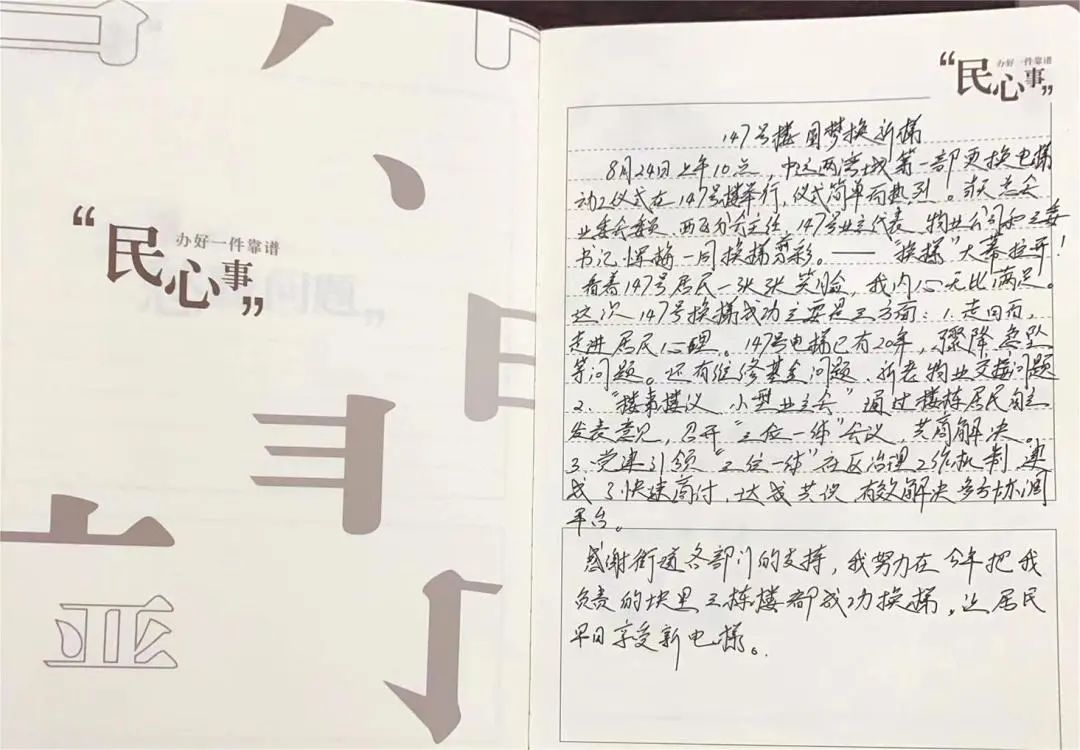 “民心事”
办好一件靠谱
“民心事”
办好一件靠谱
147号楼圆梦换新梯
8月24日上午10点，中远两湾城第一部更换电梯
动工仪式在147号楼举行，仪式简单而热烈！
业委会委员、西区分会主任，147号业主代表、物业公司和
书记 一同换梯剪彩。——“换梯”大幕拉开！
看着147号居民一张张笑脸，我内心无比满足。
这次147号换梯成功主要是三方面：1.走回而，
走进居民心理。147号电梯已有20年，骤降急坠
等问题。还有维修基金问题、新老物业交接问题
2、“楼事楼议 小型业主会”通过楼栋居民自主
发表意见，召开“三位一体”会议，共商解决。
3、党建引领“三位一体”社区治理工作机制 建
成了快速商讨，达成共识 有效解决 协调
平台。
感谢街道各部门的支持，我努力在今年把我
负责的块里三栋楼都成功换梯，让居民
早日享受新电梯。